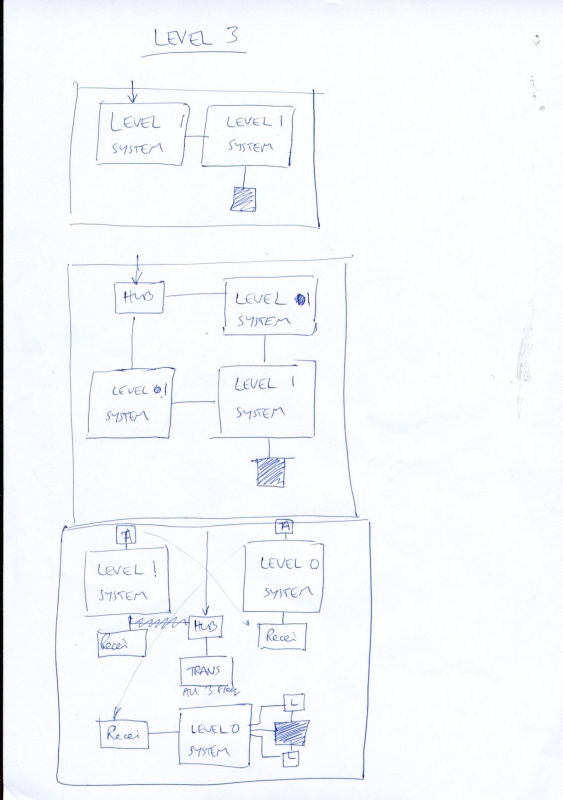 LEVEL 3
LEVEL 1
SYSTEM
LEVEL 1
SYSTEM
HUB
LEVEL 1
SYSTEM
LEVEL 1
SYSTEM
LEVEL 1
SYSTEM
TA
TA
LEVEL 1
SYSTEM
LEVEL 0
SYSTEM
Recei
HUB
Recei
TRANS
ALL 3 FREQ
Recei
LEVEL 0
SYSTEM
L
L